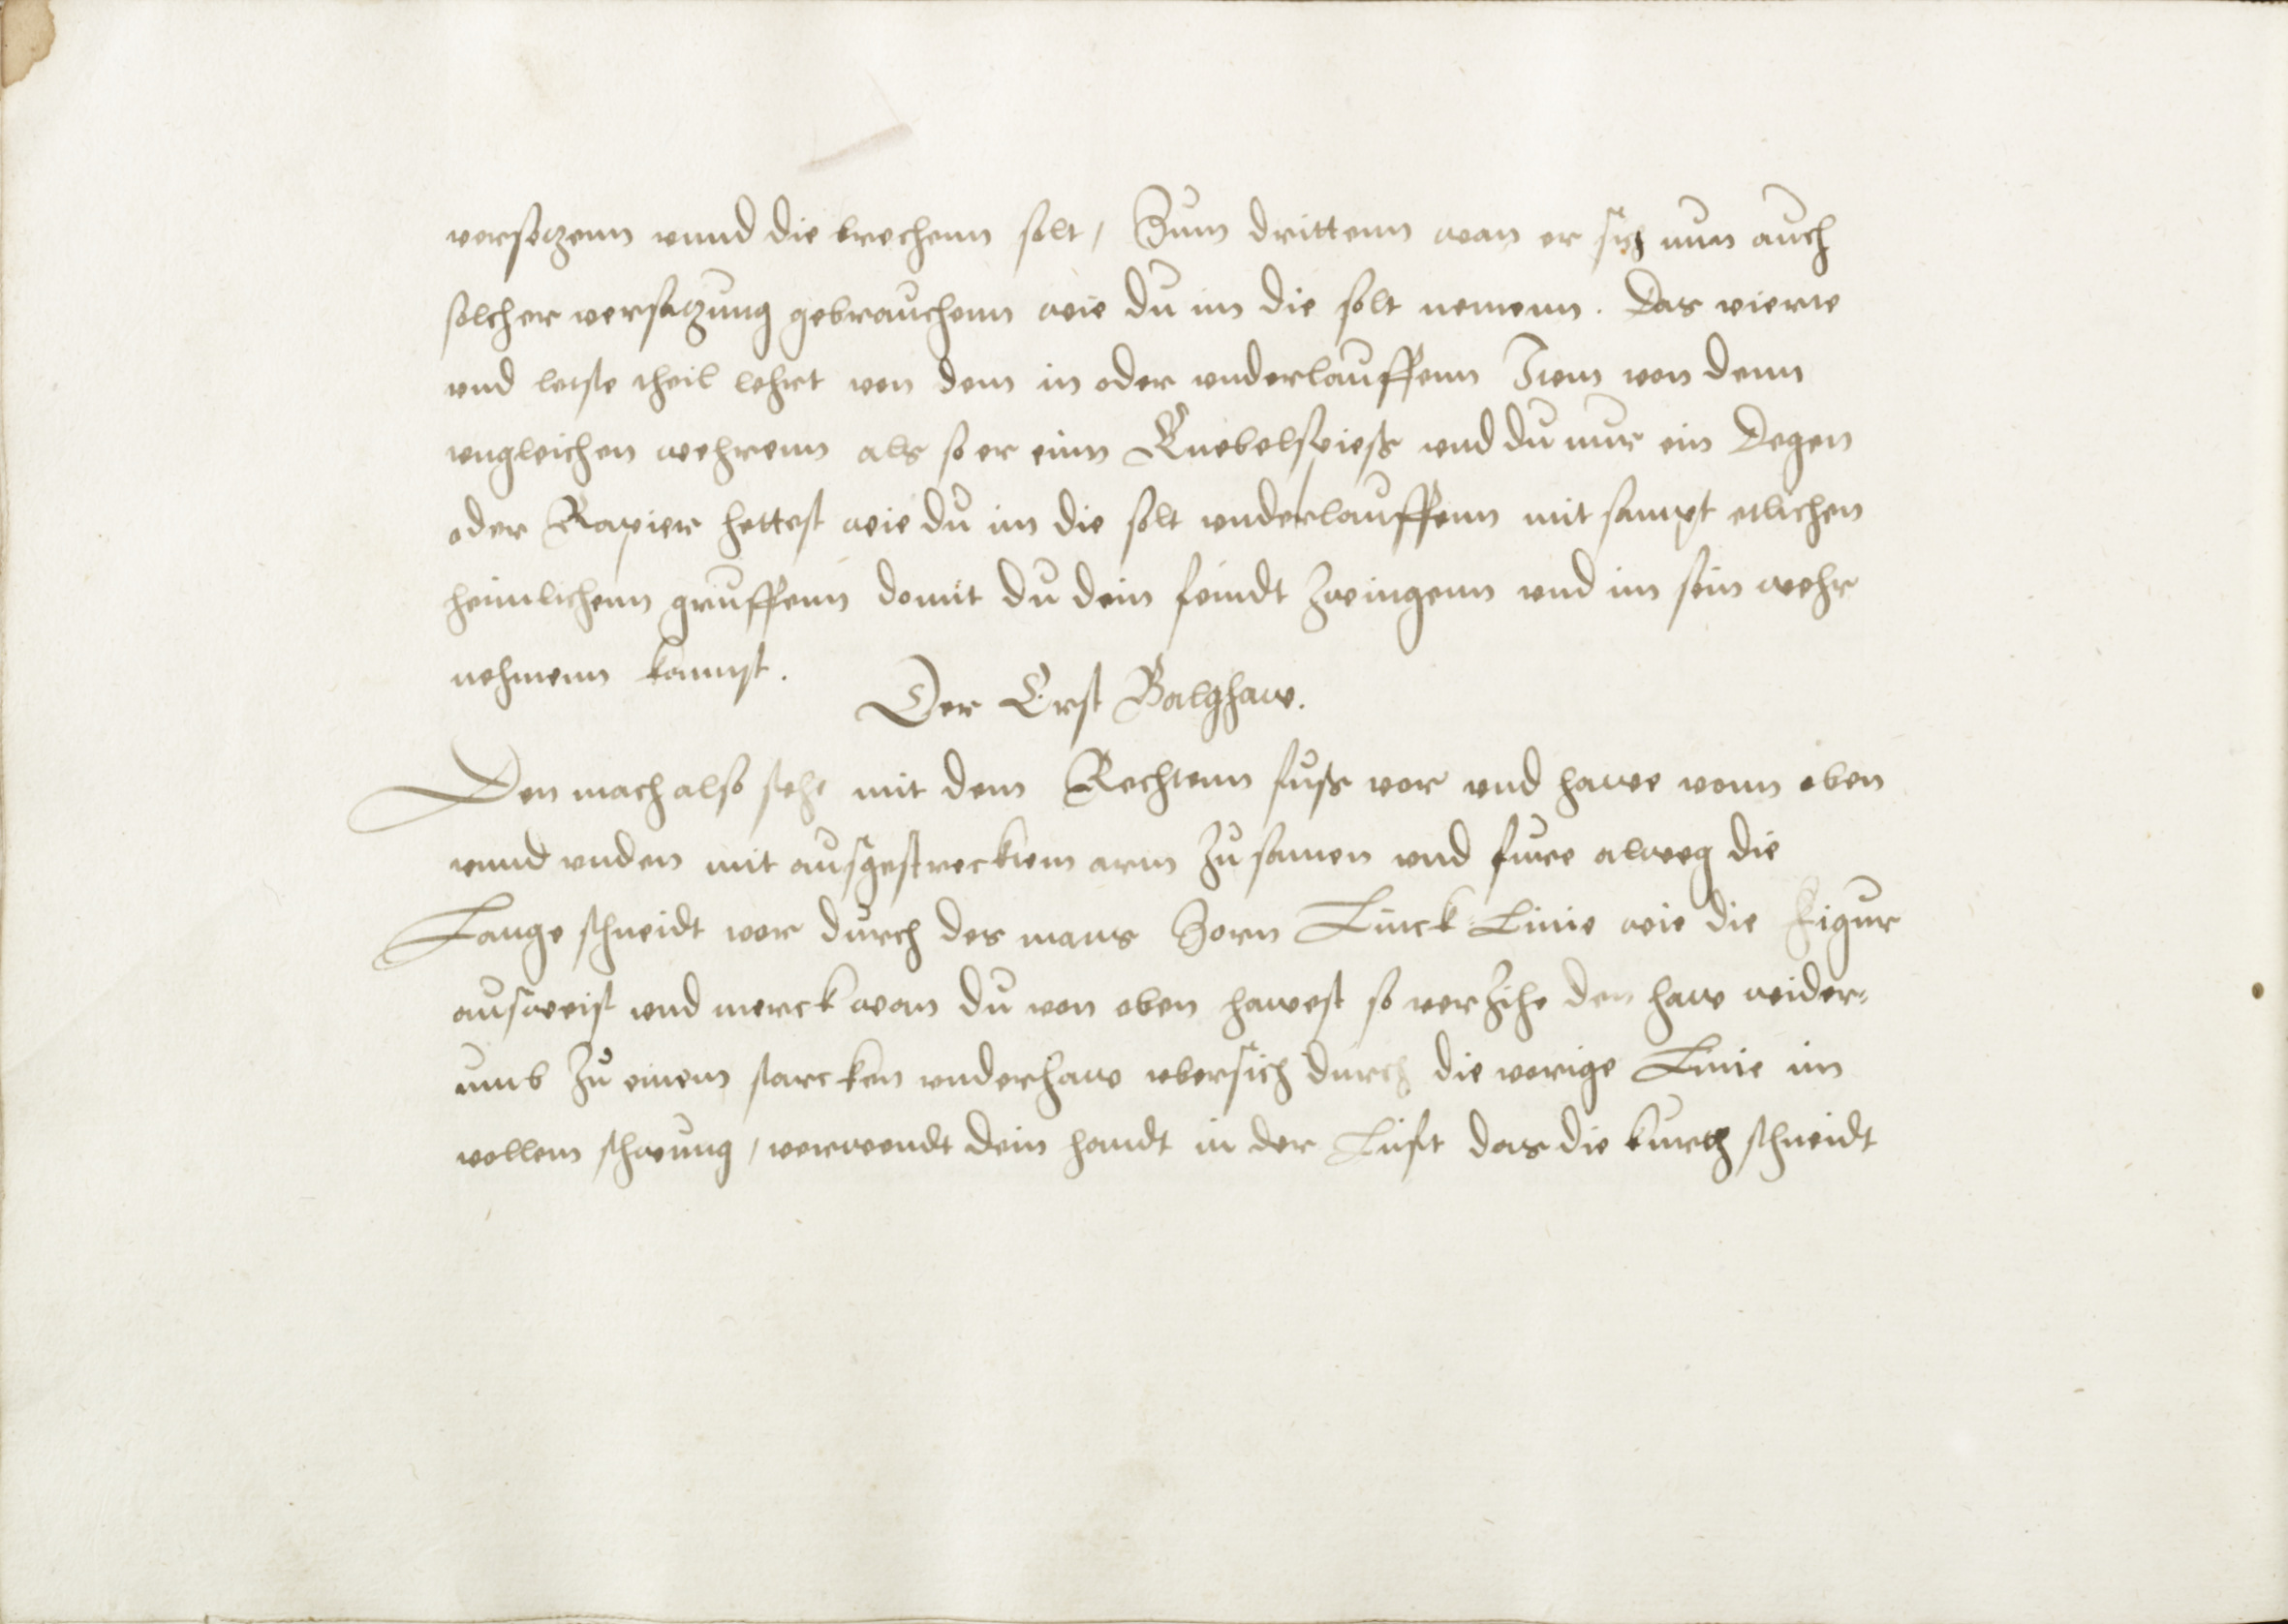 versetzenn vnnd die brechenn solt, Zum drittenn wan er sich nun auch
solcher versatzung gebrauchenn wie du im die solt nemenn. Das vierte
vnd letste theil lehrt von dem in oder vnderlauffenn Item von denn
vngleichen wehrenn als so er einn Knebelspieß vnd du nur ein Degen
oder Rapier hettest wie du im die solt vnderlauffenn mit sampt etlichen
heimlichenn gruffenn domit du dein feindt zwingenn vnd im sein wehr
nehmenn kannst.
Der Erst Balghaw.
Den mach also steht mit dem Rechtenn fuß vor vnd hawe vonn oben
vnnd vnden mit ausgestrecktem arm zusamen vnd fure alweg die
Lange schneidt vor durch des mans Zorn Linck Linie wie die Figur
ausweist vnd merck wan du von oben hawest so verzihe den haw wider⸗
umb zu einem starcken vnderhaw vbersich durch die vorige Linie im
vollem schwung, verwendt dein handt in der Lufft das die kurtz schneidt